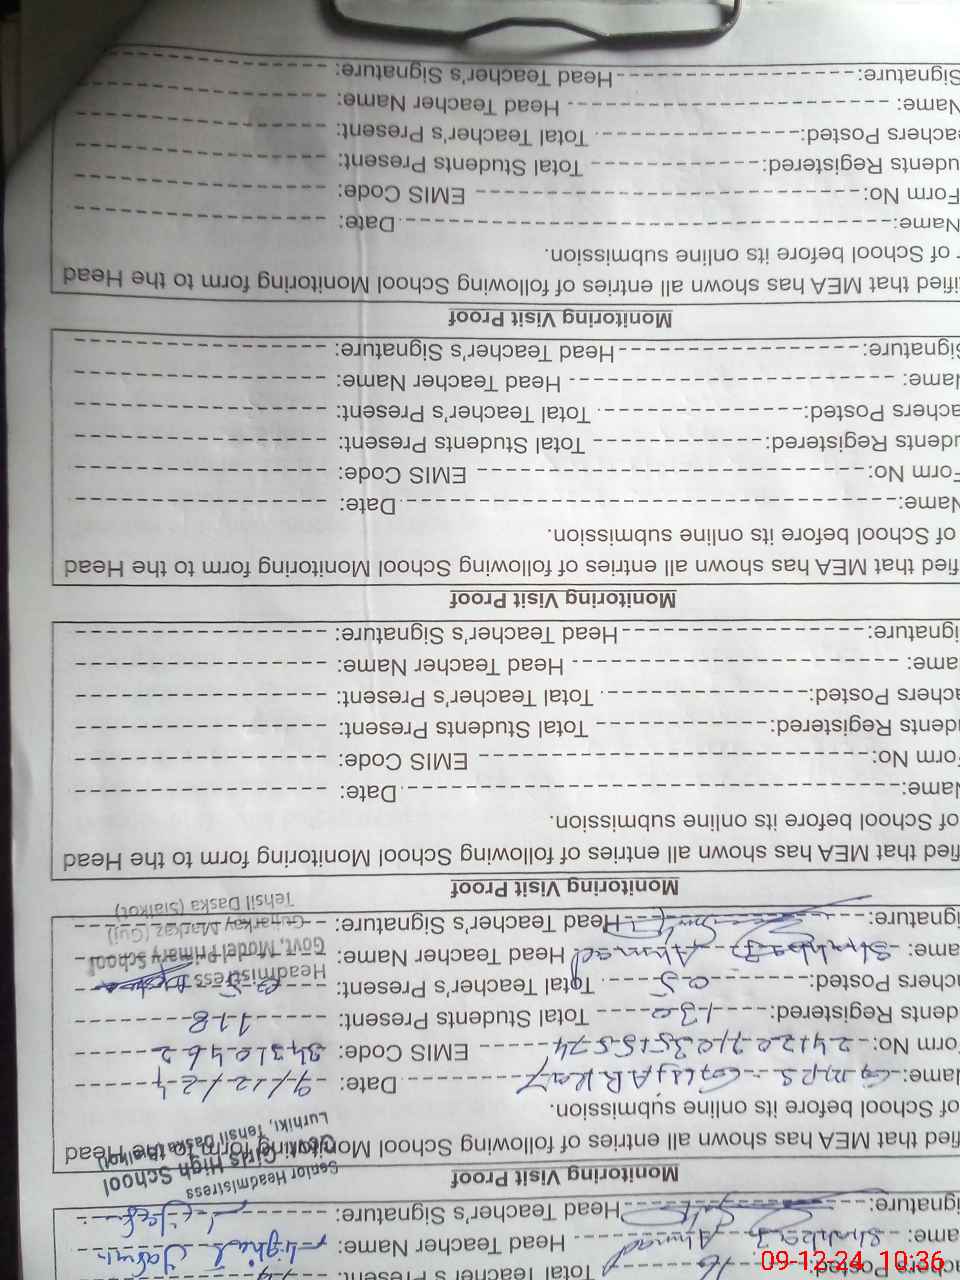 achers Posted: 16 Total Teacher's Present:
ame: Shahbaz Ahmad Head Teacher Name:
ignature: Head Teacher's Signature:
Senior Headmistress
Govt. Girls High School
Lurhiki, Tehsil Daska (Sialkot)
Monitoring Visit Proof
fied that MEA has shown all entries of following School Monitoring form to the Head
of School before its online submission.
Name: G.M.P.S Date: 9/12/24
Form No: EMIS Code: 34310462
dents Registered: 130 Total Students Present: 118
achers Posted: 05 Total Teacher's Present: 05
ame: Shahbaz Ahmad Head Teacher Name:
ignature: Head Teacher's Signature:
Headmistress
Govt. Model Primary School
Gujjarkay Markaz (Guj)
Tehsil Daska (Sialkot)
Monitoring Visit Proof
fied that MEA has shown all entries of following School Monitoring form to the Head
of School before its online submission.
Name: Date:
Form No: EMIS Code:
udents Registered: Total Students Present:
achers Posted: Total Teacher's Present:
ame: Head Teacher Name:
ignature: Head Teacher's Signature:
Monitoring Visit Proof
ified that MEA has shown all entries of following School Monitoring form to the Head
of School before its online submission.
Name: Date:
Form No: EMIS Code:
udents Registered: Total Students Present:
achers Posted: Total Teacher's Present:
Name: Head Teacher Name:
Signature: Head Teacher's Signature:
Monitoring Visit Proof
ified that MEA has shown all entries of following School Monitoring form to the Head
r of School before its online submission.
Name: Date:
Form No: EMIS Code:
udents Registered: Total Students Present:
eachers Posted: Total Teacher's Present:
Name: Head Teacher Name:
Signature: Head Teacher's Signature:
09-12-24 10:36